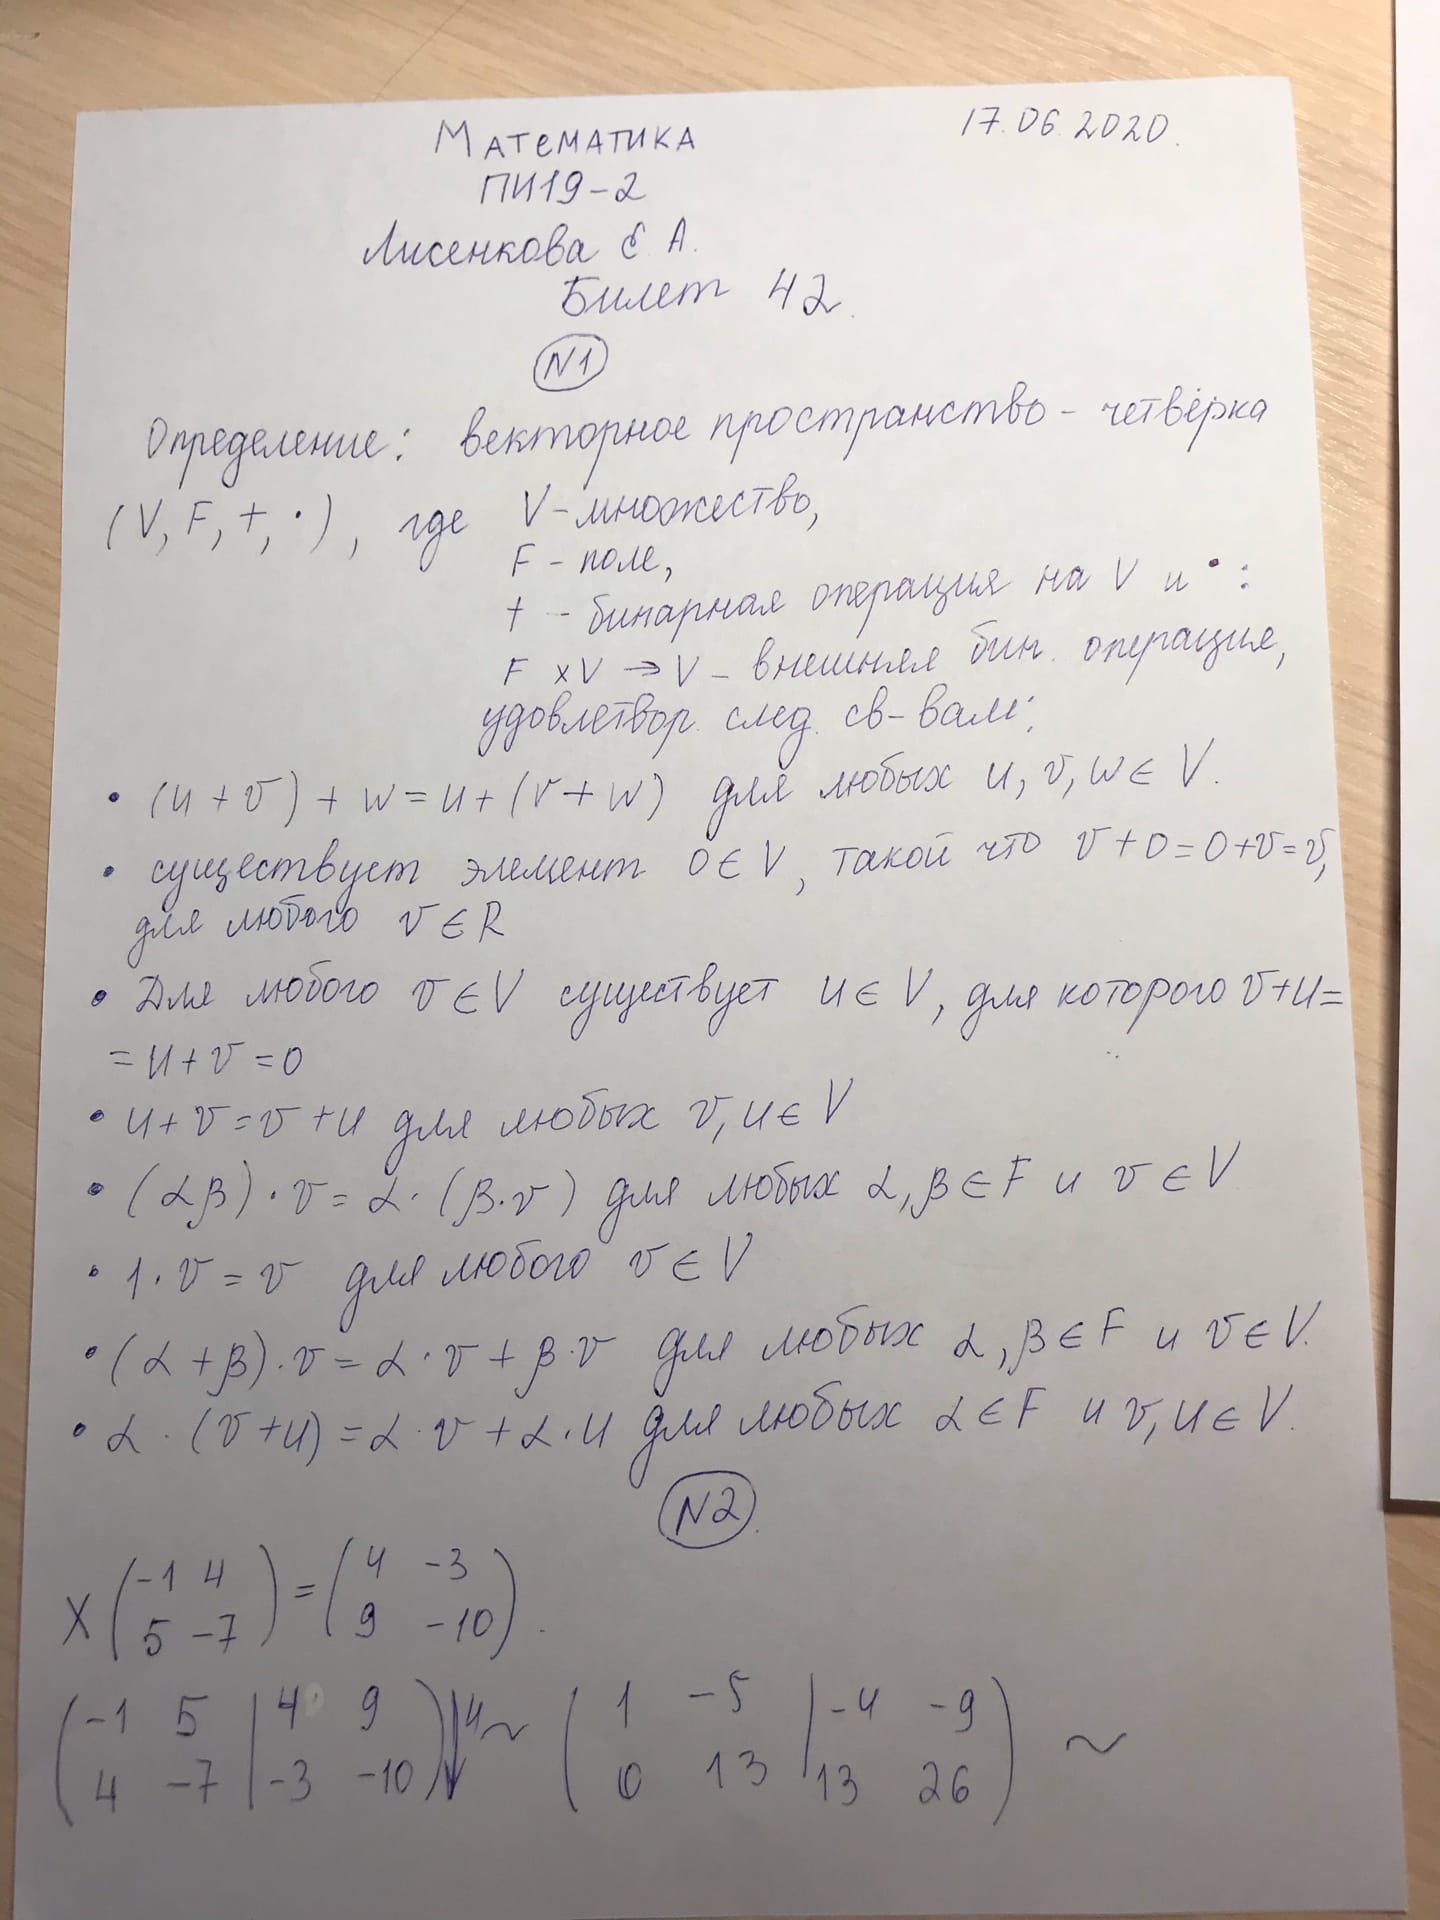 Математика
17.06.2020.
ПИ19-2
Лисенкова Е.А.
Билет 42.
N1
Определение: векторное пространство - четвёрка
(V, F, +, ·), где V - множество,
F - поле,
+ - бинарная операция на V и · :
F x V → V - внешняя бин. операция,
удовлетвор. след. св-вам:
• (u + v) + w = u + (v + w) для любых u, v, w ∈ V.
• существует элемент 0 ∈ V, такой что v + 0 = 0 + v = v,
для любого v ∈ R
• Для любого v ∈ V существует u ∈ V, для которого v + u =
= u + v = 0
• u + v = v + u для любых v, u ∈ V
• (αβ) · v = α · (β · v) для любых α, β ∈ F и v ∈ V
• 1 · v = v для любого v ∈ V
• (α + β) · v = α · v + β · v для любых α, β ∈ F и v ∈ V.
• α · (v + u) = α · v + α · u для любых α ∈ F и v, u ∈ V.
N2.
X (-1 4 ) = (4 -3)
5 -7 9 -10 .
(-1 5 | 4 9) ↓4 ~ (1 -5 | -4 -9) ~
4 -7 | -3 -10 0 13 | 13 26